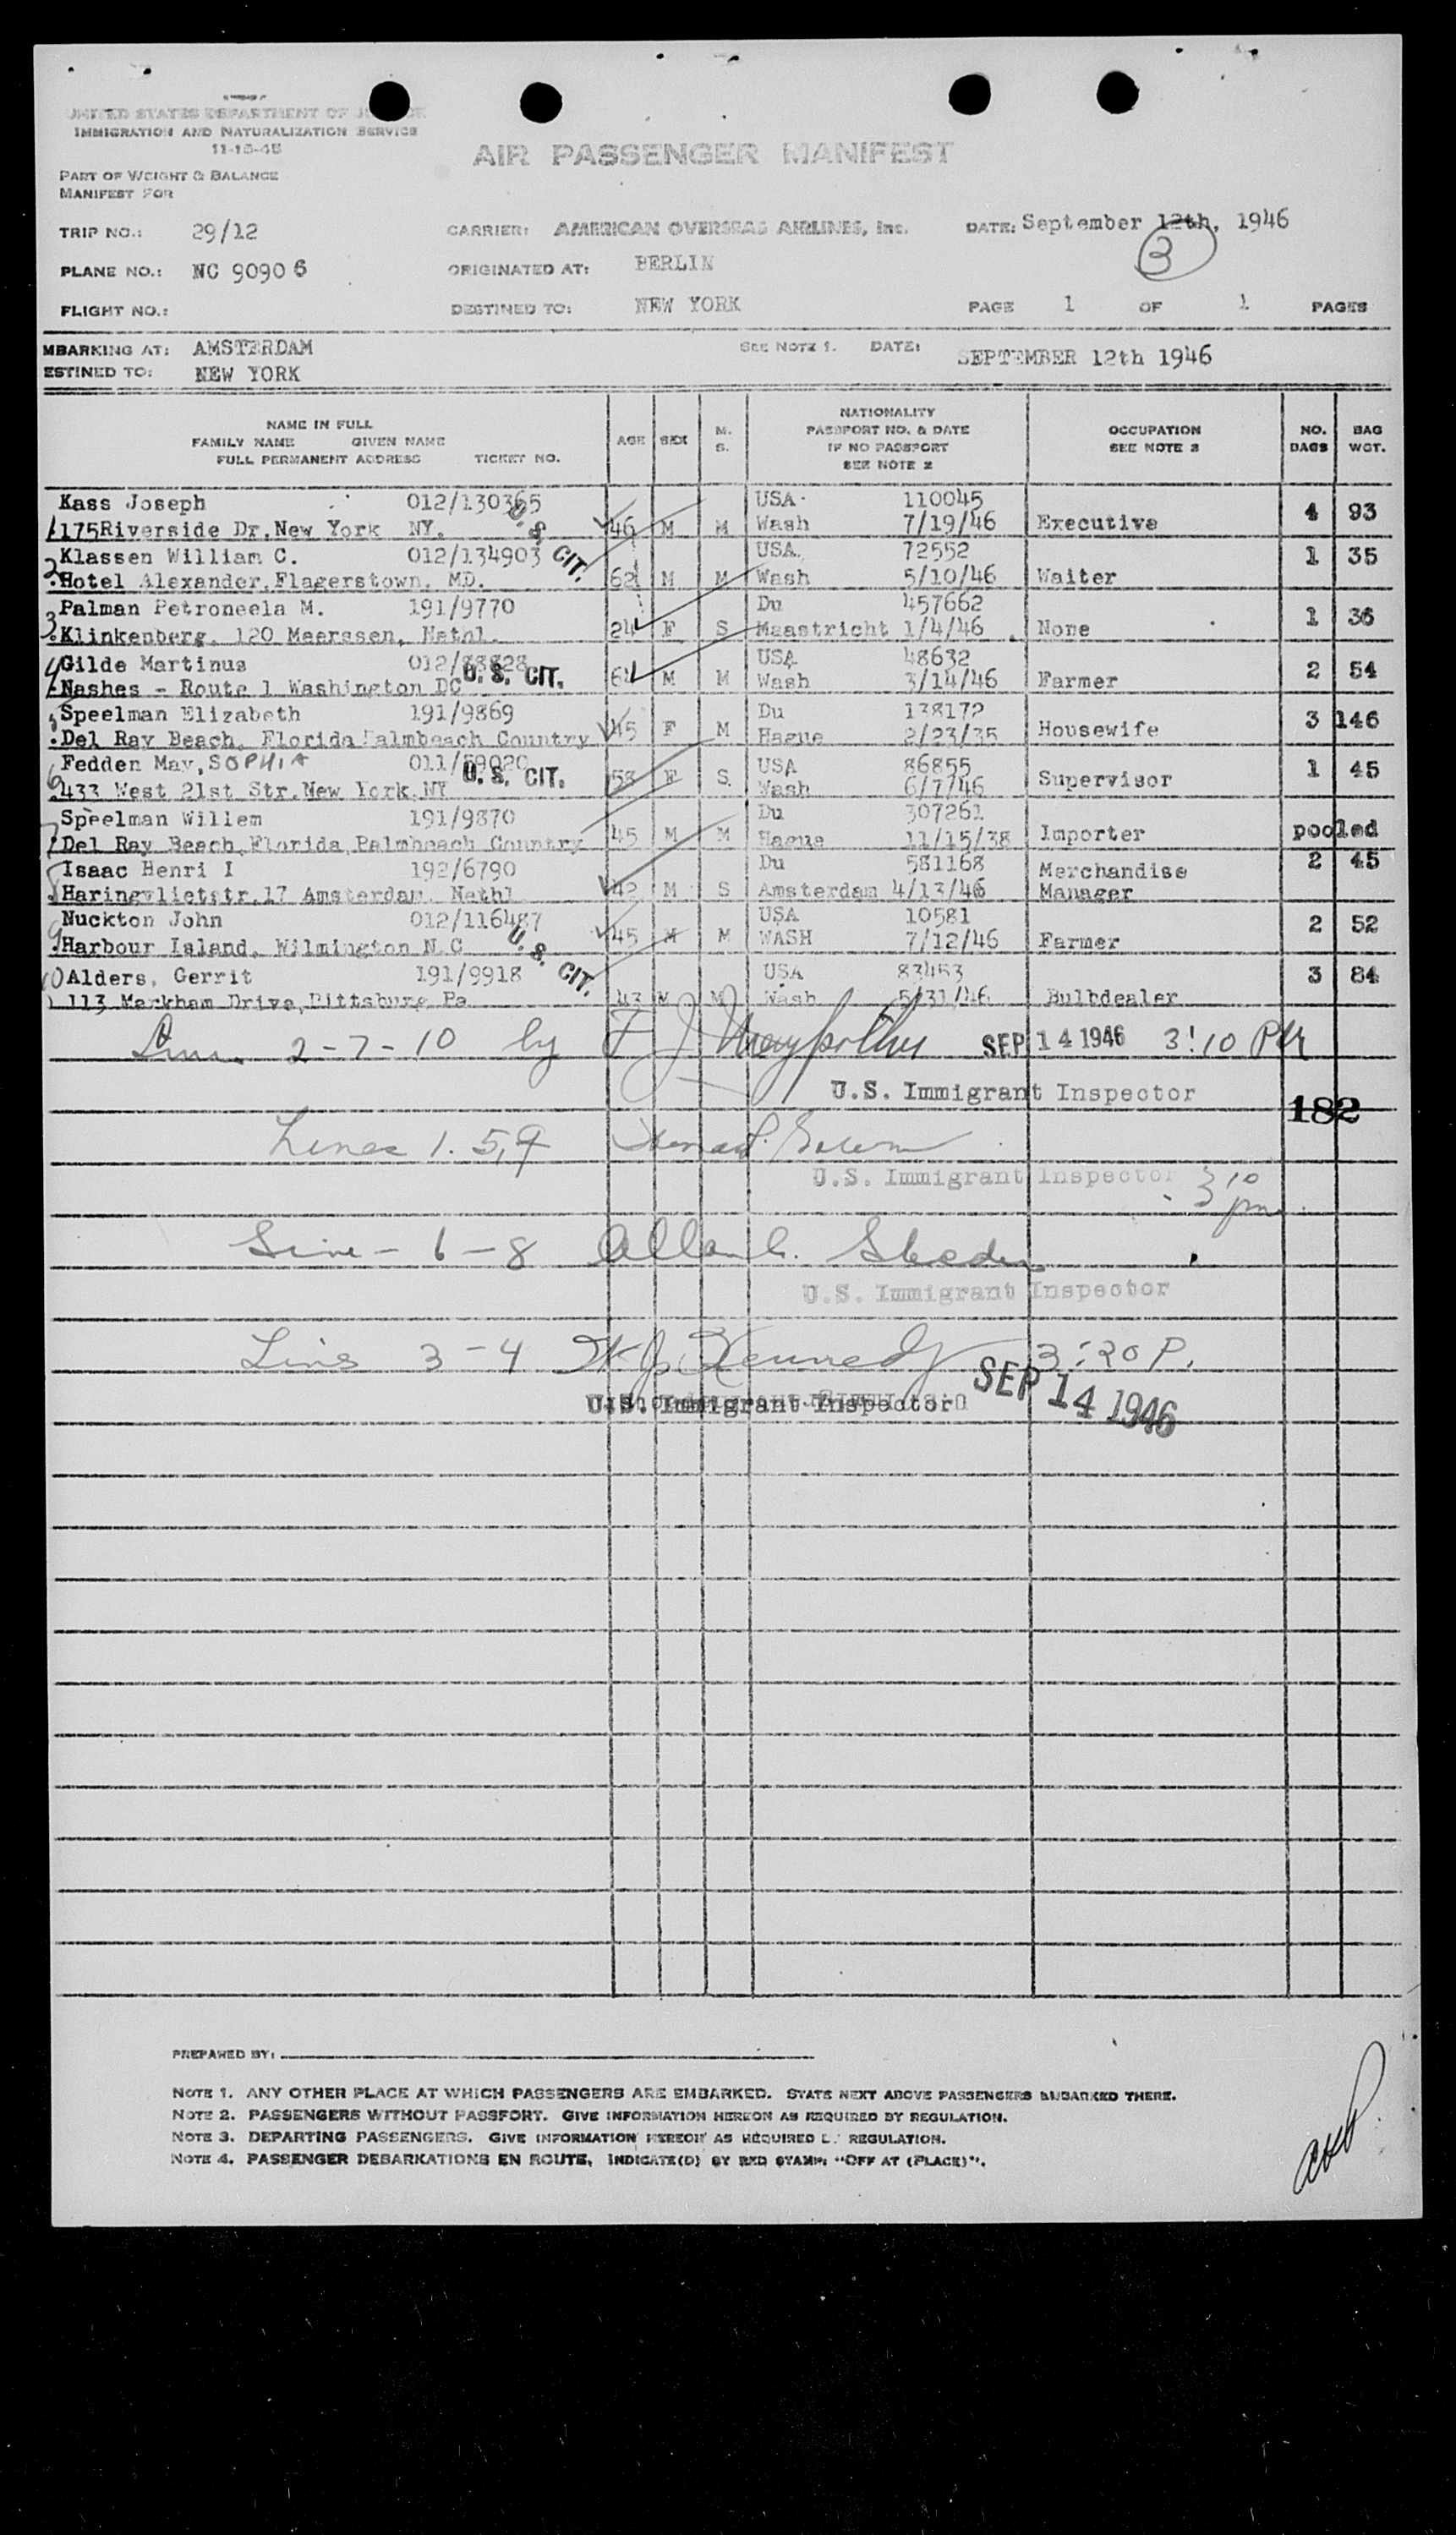 UNITED STATES DEPARTMENT OF
IMMIGRATION AND NATURALIZATION SERVICE
11-15-45
AIR PASSENGER MANIFEST
PART OF WEIGHT & BALANCE
MANIFEST FOR
TRIP NO.: 29/12 CARRIER: AMERICAN OVERSEAS AIRLINES, Inc. DATE: September 12th, 1946
3
PLANE NO.: NC 90906 ORIGINATED AT: BERLIN
FLIGHT NO.: DESTINED TO: NEW YORK PAGE 1 OF 1 PAGES
MBARKING AT: AMSTERDAM SEE NOTE 1. DATE: SEPTEMBER 12th 1946
ESTINED TO: NEW YORK
NAME IN FULL
FAMILY NAME GIVEN NAME
FULL PERMANENT ADDRESS TICKET NO.
AGE SEX M. S.
NATIONALITY
PASSPORT NO. & DATE
IF NO PASSPORT
SEE NOTE 2
OCCUPATION
SEE NOTE 3
NO. BAGS BAG WGT.
Kass Joseph 012/130365 USA 110045 4 93
1 175Riverside Dr.New York NY. U. S. CIT. 46 M M Wash 7/19/46 Executive
Klassen William C. 012/134903 USA. 72552 1 35
2 Hotel Alexander,Flagerstown. MD. 62 M M Wash 5/10/46 Waiter
Palman Petroneela M. 191/9770 Du 457662 1 36
3 Klinkenberg. 120 Meerssen, Nethl. 24 F S Maastricht 1/4/46 None
Gilde Martinus 012/88828 USA 48632 2 54
4 Nashes - Route 1 Washington DC U. S. CIT. 64 M M Wash 3/14/46 Farmer
Speelman Elizabeth 191/9869 Du 138172 3 146
Del Ray Beach, Florida Palmbeach Country 45 F M Hague 2/23/35 Housewife
Fedden May, SOPHIA 011/59020 USA 86855 1 45
6 433 West 21st Str.New York.NY U. S. CIT. 58 F S. Wash 6/7/46 Supervisor
Speelman Willem 191/9870 Du 307261
7 Del Ray Beach,Florida,Palmbeach Country 45 M M Hague 11/15/38 Importer pooled
Isaac Henri I 192/6790 Du 581168 Merchandise 2 45
8 Haringvlietstr.17 Amsterdam. Nethl 42 M S Amsterdam 4/13/46 Manager
Nuckton John 012/116487 USA 10581 2 52
9 Harbour Island, Wilmington N.C U. S. CIT. 45 M M WASH 7/12/46 Farmer
10 Alders, Gerrit 191/9918 USA 83453 3 84
113 Markham Drive,Pittsburg Pa 43 M M Wash 5/31/46 Bulbdealer
2-7-10 by F J SEP 14 1946 3:10 PM
U.S. Immigrant Inspector
182
Lines 1. 5, 9
U.S. Immigrant Inspector 3 10 pm
Line - 6 - 8 Allan
U.S. Immigrant Inspector
Line 3 - 4 Kennedy 3:20 P.
U.S. Immigrant Inspector SEP 14 1946
PREPARED BY:
NOTE 1. ANY OTHER PLACE AT WHICH PASSENGERS ARE EMBARKED. STATE NEXT ABOVE PASSENGERS EMBARKED THERE.
NOTE 2. PASSENGERS WITHOUT PASSPORT. GIVE INFORMATION HEREON AS REQUIRED BY REGULATION.
NOTE 3. DEPARTING PASSENGERS. GIVE INFORMATION HEREON AS REQUIRED BY REGULATION.
NOTE 4. PASSENGER DEBARKATIONS EN ROUTE, INDICATE(D) BY RED STAMP: "OFF AT (PLACE)".